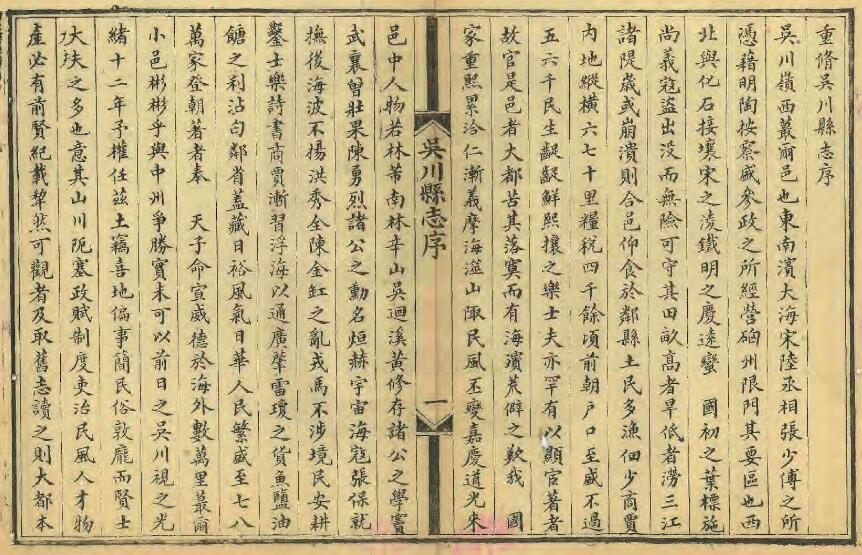 重脩吳川縣志序
吳川嶺西蕞爾邑也東南濱大海宋陸丞相張少傅之所
憑藉明陶按察戚參政之所經營硇州限門其要區也西
北與化石接壤宋之淩鐵明之慶遠蠻　國初之葉標施
尚義寇盜出没而無險可守其田畝高者旱低者澇三江
諸隄歲或崩潰則合邑仰食於鄰縣土民多漁佃少商賈
内地縱橫六七十里糧税四千餘頃前朝户口至盛不過
五六千民生齪齪鮮熙攘之樂士夫亦罕有以顯宦著者
故官是邑者大都苦其落寞而有海濱荒僻之歎我　國
家重熙累洽仁漸義摩海澨山陬民風丕變嘉慶道光來
吳川縣志序
一
邑中人物若林芾南林辛山吳迴溪黄修存諸公之學竇
武襄曾壯果陳勇烈諸公之勳名烜赫宇宙海寇張保就
撫後海波不揚洪秀全陳金缸之亂戎馬不涉境民安耕
鑿士樂詩書商賈漸習浮海以通廣肇雷瓊之貨魚鹽油
餹之利沾匄鄰省蓋藏日裕風氣日華人民繁盛至七八
萬家登朝著者奉　天子命宣威德於海外數萬里蕞爾
小邑彬彬乎與中州爭勝實未可以前日之吳川視之光
緒十二年予權任茲土竊喜地偏事簡民俗敦龐而賢士
大夫之多也意其山川阨塞政賦制度吏治民風人才物
產必有前賢紀載犂然可觀者及取舊志讀之則大都本